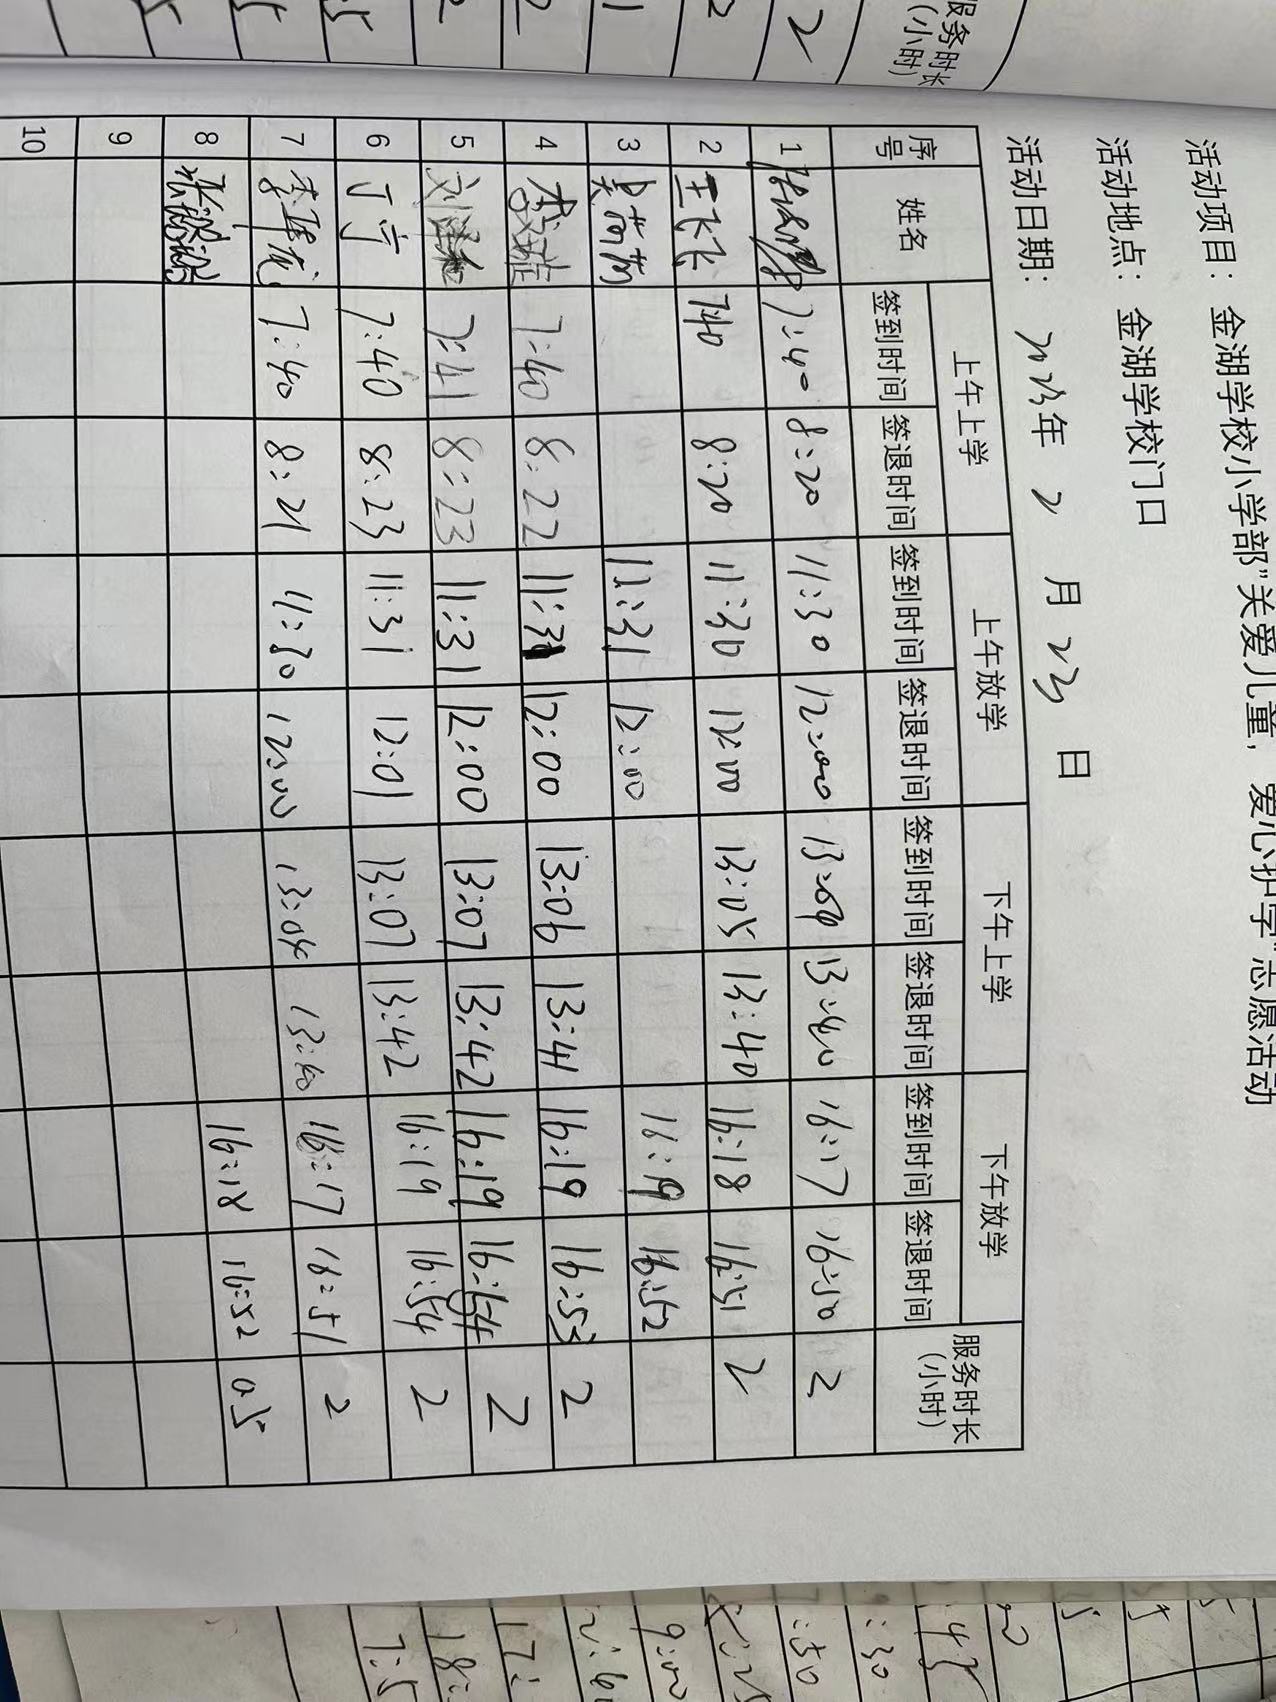 活动项目：金湖学校小学部"关爱儿童，爱心护学"志愿活动
活动地点：金湖学校门口
活动日期：2023年 2 月 23 日
序号 姓名 上午上学 上午放学 下午上学 下午放学 服务时长（小时）
签到时间 签退时间 签到时间 签退时间 签到时间 签退时间 签到时间 签退时间
1 7:40 8:20 11:30 12:00 13:40 16:17 16:50 2
2 王飞飞 7:40 8:20 11:30 12:00 13:05 13:40 16:18 16:51 2
3 吴莉莉 11:31 12:00 16:19 16:52
4 7:40 8:22 11:31 12:00 13:06 13:41 16:19 16:53 2
5 7:41 8:23 11:31 12:00 13:07 13:42 16:19 16:54 2
6 丁宁 7:40 8:23 11:31 12:01 13:07 13:42 16:19 16:54 2
7 7:40 8:21 11:30 12:00 13:04 13:40 16:17 16:51 2
8 16:18 16:52 0.5
9
10
服务时长（小时）
2